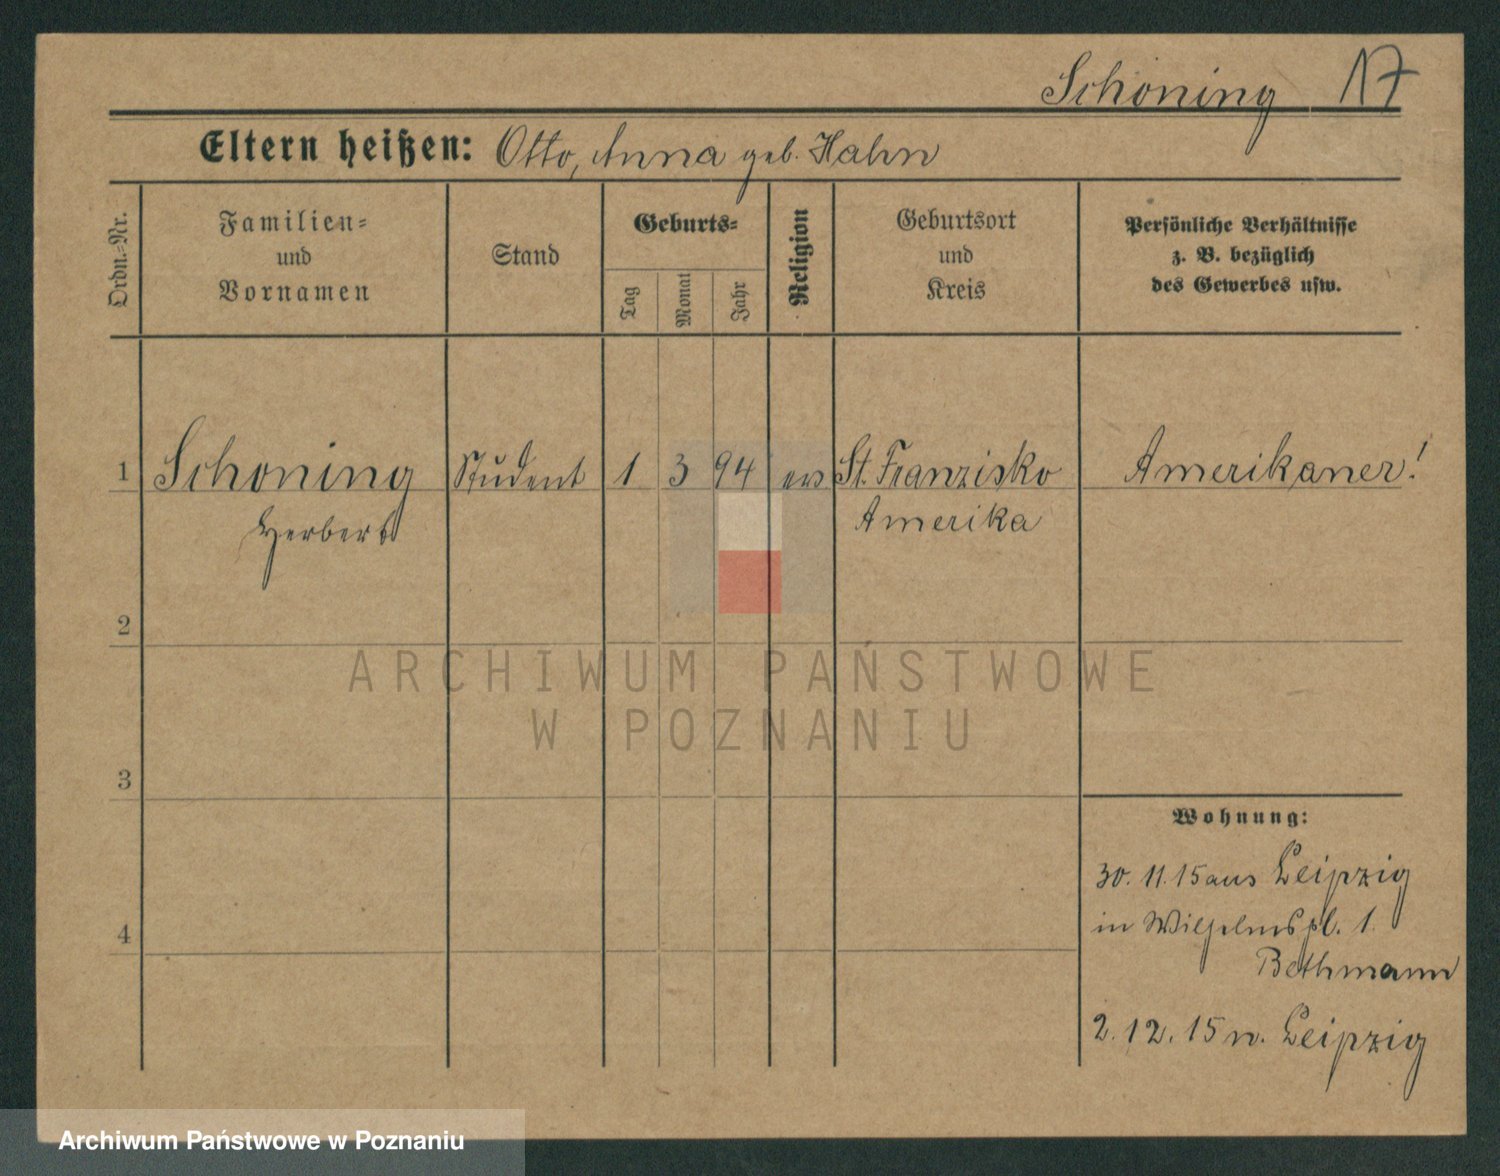 Schoning 17
Eltern heißen: Otto, Anna geb. Hahn
Ordn.-Nr.
Familien-
und
Vornamen
Stand
Geburts-
Tag
Monat
Jahr
Religion
Geburtsort
und
Kreis
Persönliche Verhältnisse
z. B. bezüglich
des Gewerbes usw.
1 Schoning Student 1 3 94 ev St. Franzisko Amerikaner!
Herbert Amerika
2
ARCHIWUM PAŃSTWOWE
W POZNANIU
3
Wohnung:
30. 11. 15 aus Leipzig
in Wilhelmspl. 1.
4
Bethmann
2. 12. 15 n. Leipzig
Archiwum Państwowe w Poznaniu